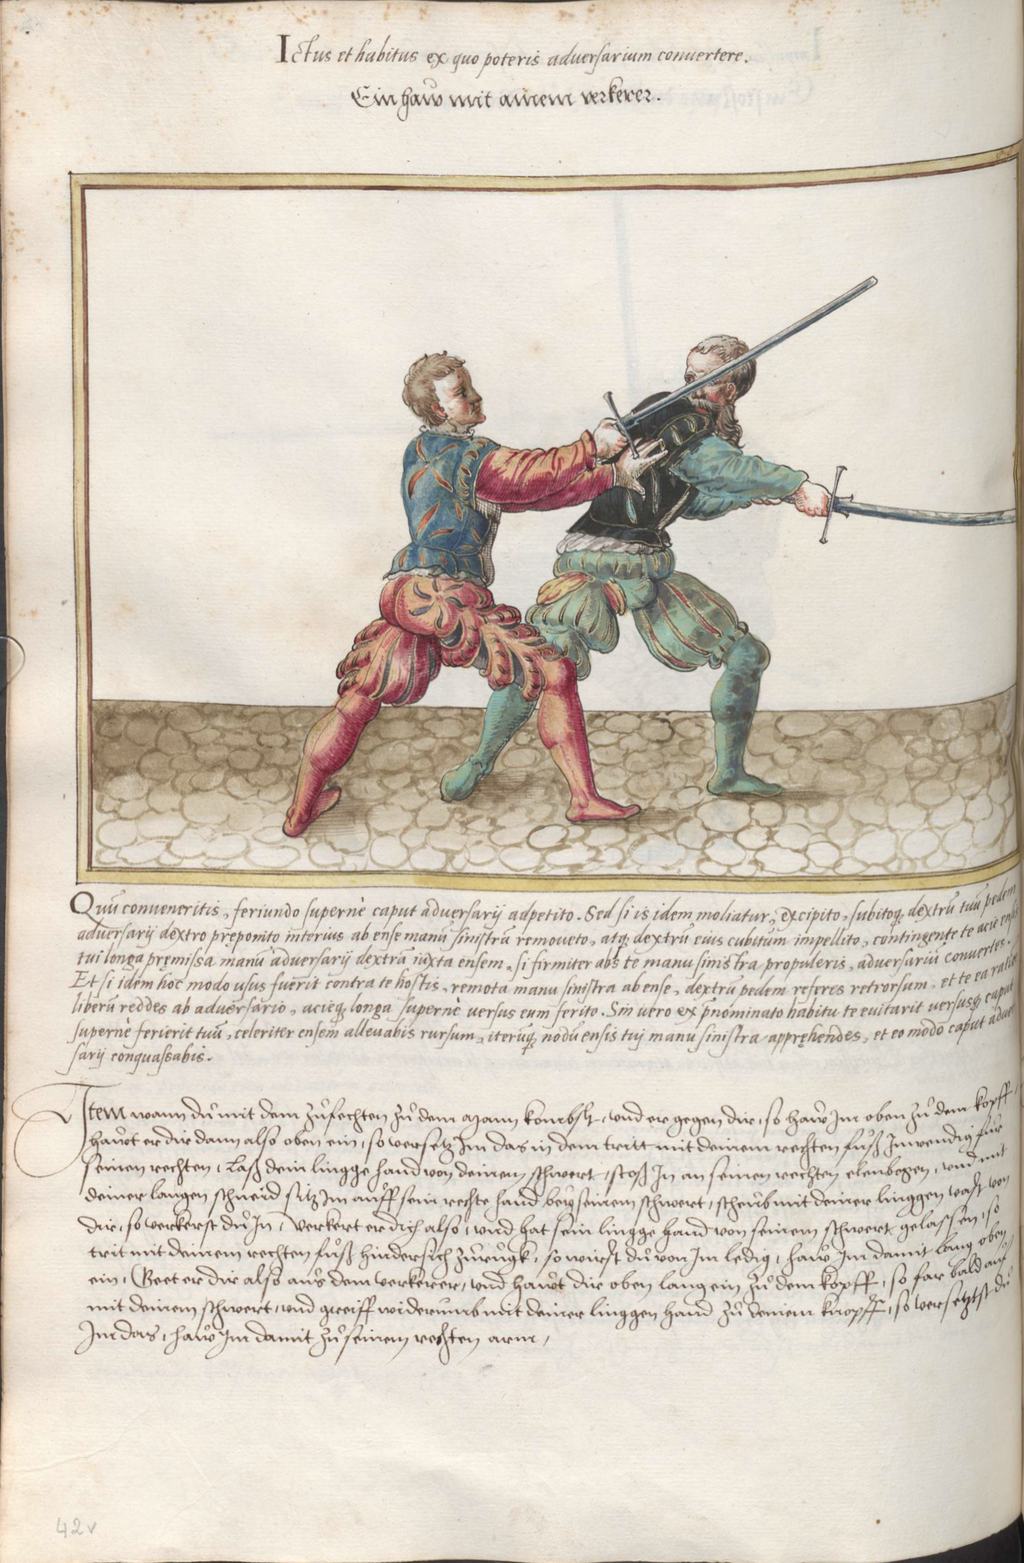 Ictus et habitus ex quo poteris adversarium convertere.
Ein haw mit ainem verkerer.
Quū conveneritis, feriundo supernè caput adversarij adpetito. Sed si is idem moliatur, excipito, subitoq; dextrū tuū pedem
adversarij dextro preponito interius ab ense manū sinistrā removeto, atq; dextrū eius cubitum impellito, contingente te acie ensis
tui longa pręmissa manū adversarij dextrā iuxta ensem, si firmiter abs te manu sinistra propuleris, adversariū convertes.
Et si idem hoc modo usus fuerit contra te hostis, remota manu sinistra ab ense, dextrū pedem referes retrorsum, et te ea ratiōe
liberū reddes ab adversario, acieq; longa supernè versus eum ferito. Sin vero ex p̄nominato habitu te evitarit versusq; caput
supernè ferierit tuū, celeriter ensem allevabis rursum, iterūq; nodū ensis tuj manu sinistra apprehendes, et eo modo caput adver
sarij conquassabis.
Item wann dŭ mit dem zŭfechten zŭ dem mann kombst, und er gegen dir, so haw Im oben zŭ dem kopff,
hawt er dir dann also oben ein, so versetz Im das in dem tritt mit deinem rechten fŭß Inwendig für
seinen rechten, Laß dein lingge hand von deinem schwert, stoß In an seinen rechten elenbogen, und mit
deiner langen schneid sitz Im auff sein rechte hand bey seinem schwert, scheŭb mit deiner linggen vast von
dir, so verkerst dŭ In, Verkert er dich also, und hat sein lingge hand von seinem schwert gelassen, so
trit mit deinem rechten fŭß hindersich zŭrŭgk, so wirst dŭ von Im ledig, haw Im damit lang oben
ein, Geet er dir also aŭs dem verkerer, und hawt dir oben lang ein zŭ dem kopff, so far bald auf
mit deinem schwert, und greiff widerumb mit deiner linggen hand zŭ deinem knopff, so versetzst dŭ
Im das, haw Im damit zŭ seinem rechten arm,
42v